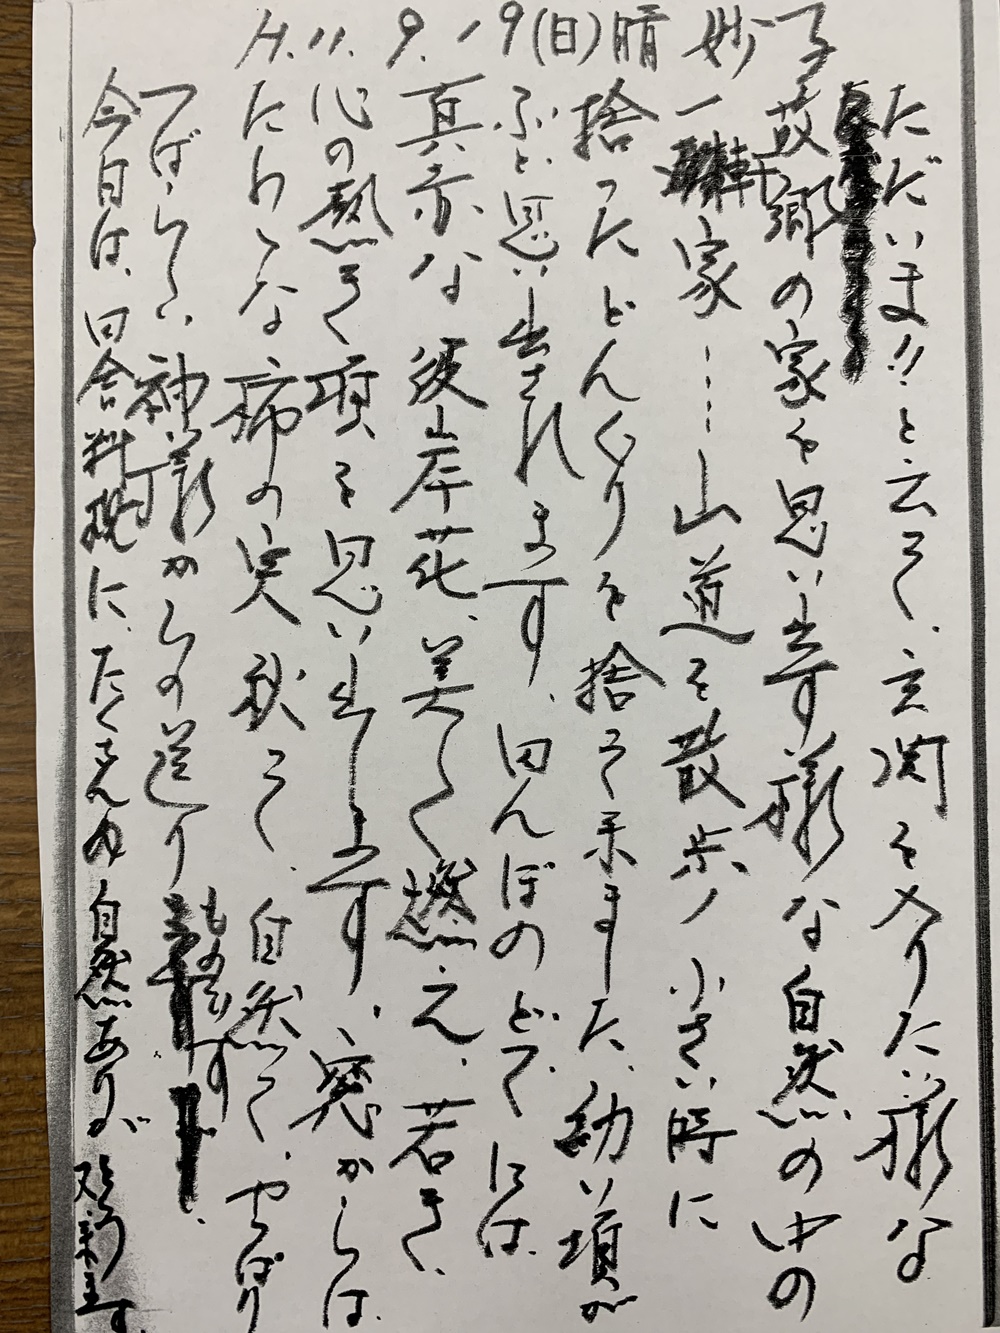 H.11.9.19(日)晴 妙子
ただいま!!と云って、玄関を入りたい様な
故郷の家を思い出す様な自然の中の
一軒家……山道を散歩ノ小さい時に
捨ったどんぐりを捨って来ました、幼い頃が
ふと思い出されます、田んぼのどてには
真赤な彼岸花、美しく燃え、若き、
心の熱き頃を思い出します、窓からは
たわわな柿の実 秋って、自然って、やっぱり
すばらしい神様からの送りものです、
今日は、田舎料理に、たくさんの自然あり、